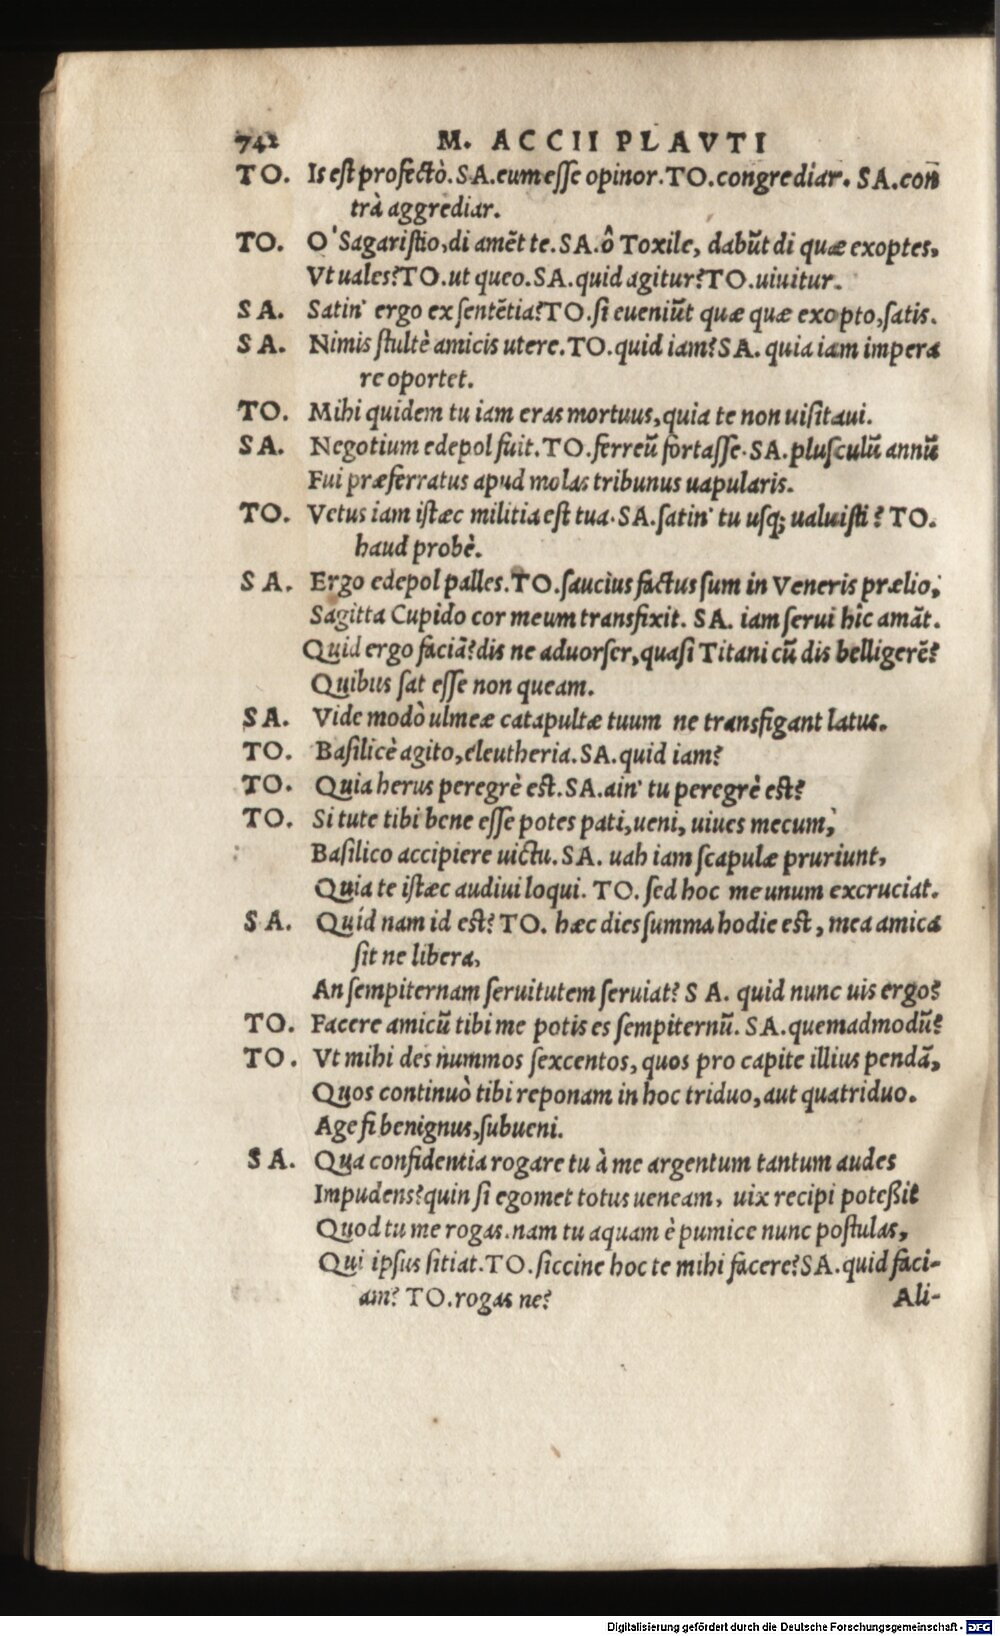 742 M. ACCII PLAVTI
TO. Is est profectò. SA. eum esse opinor. TO. congrediar. SA. con
trà aggrediar.
TO. O' Sagaristio, di amẽt te. SA. ô Toxile, dabũt di quæ exoptes,
Vt uales? TO. ut queo. SA. quid agitur? TO. uiuitur.
SA. Satin' ergo ex sentẽtia? TO. si eueniũt quæ quæ exopto, satis.
SA. Nimis stultè amicis utere. TO. quid iam? SA. quia iam impera
re oportet.
TO. Mihi quidem tu iam eras mortuus, quia te non uisitaui.
SA. Negotium edepol fuit. TO. ferreũ fortasse. SA. plusculũ annũ
Fui præferratus apud molas tribunus uapularis.
TO. Vetus iam istæc militia est tua. SA. satin' tu usq; ualuisti? TO.
haud probè.
SA. Ergo edepol palles. TO. saucius factus sum in Veneris prælio;
Sagitta Cupido cor meum transfixit. SA. iam serui hîc amãt.
Quid ergo faciã? dis ne aduorser, quasi Titani cũ dis belligerẽ?
Quibus sat esse non queam.
SA. Vide modò ulmeæ catapultæ tuum ne transfigant latus.
TO. Basilicè agito, eleutheria. SA. quid iam?
TO. Quia herus peregrè est. SA. ain' tu peregrè est?
TO. Si tute tibi bene esse potes pati, ueni, uiues mecum,
Basilico accipiere uictu. SA. uah iam scapulæ pruriunt,
Quia te istæc audiui loqui. TO. sed hoc me unum excruciat.
SA. Quid nam id est? TO. hæc dies summa hodie est, mea amica
sit ne libera,
An sempiternam seruitutem seruiat? SA. quid nunc uis ergo?
TO. Facere amicũ tibi me potis es sempiternũ. SA. quemadmodũ?
TO. Vt mihi des nummos sexcentos, quos pro capite illius pendã,
Quos continuò tibi reponam in hoc triduo, aut quatriduo.
Age fi benignus, subueni.
SA. Qua confidentia rogare tu à me argentum tantum audes
Impudens? quin si egomet totus ueneam, uix recipi poteßit
Quod tu me rogas. nam tu aquam è pumice nunc postulas,
Qui ipsus sitiat. TO. siccine hoc te mihi facere? SA. quid faci-
am? TO. rogas ne? Ali-
Digitalisierung gefördert durch die Deutsche Forschungsgemeinschaft - DFG